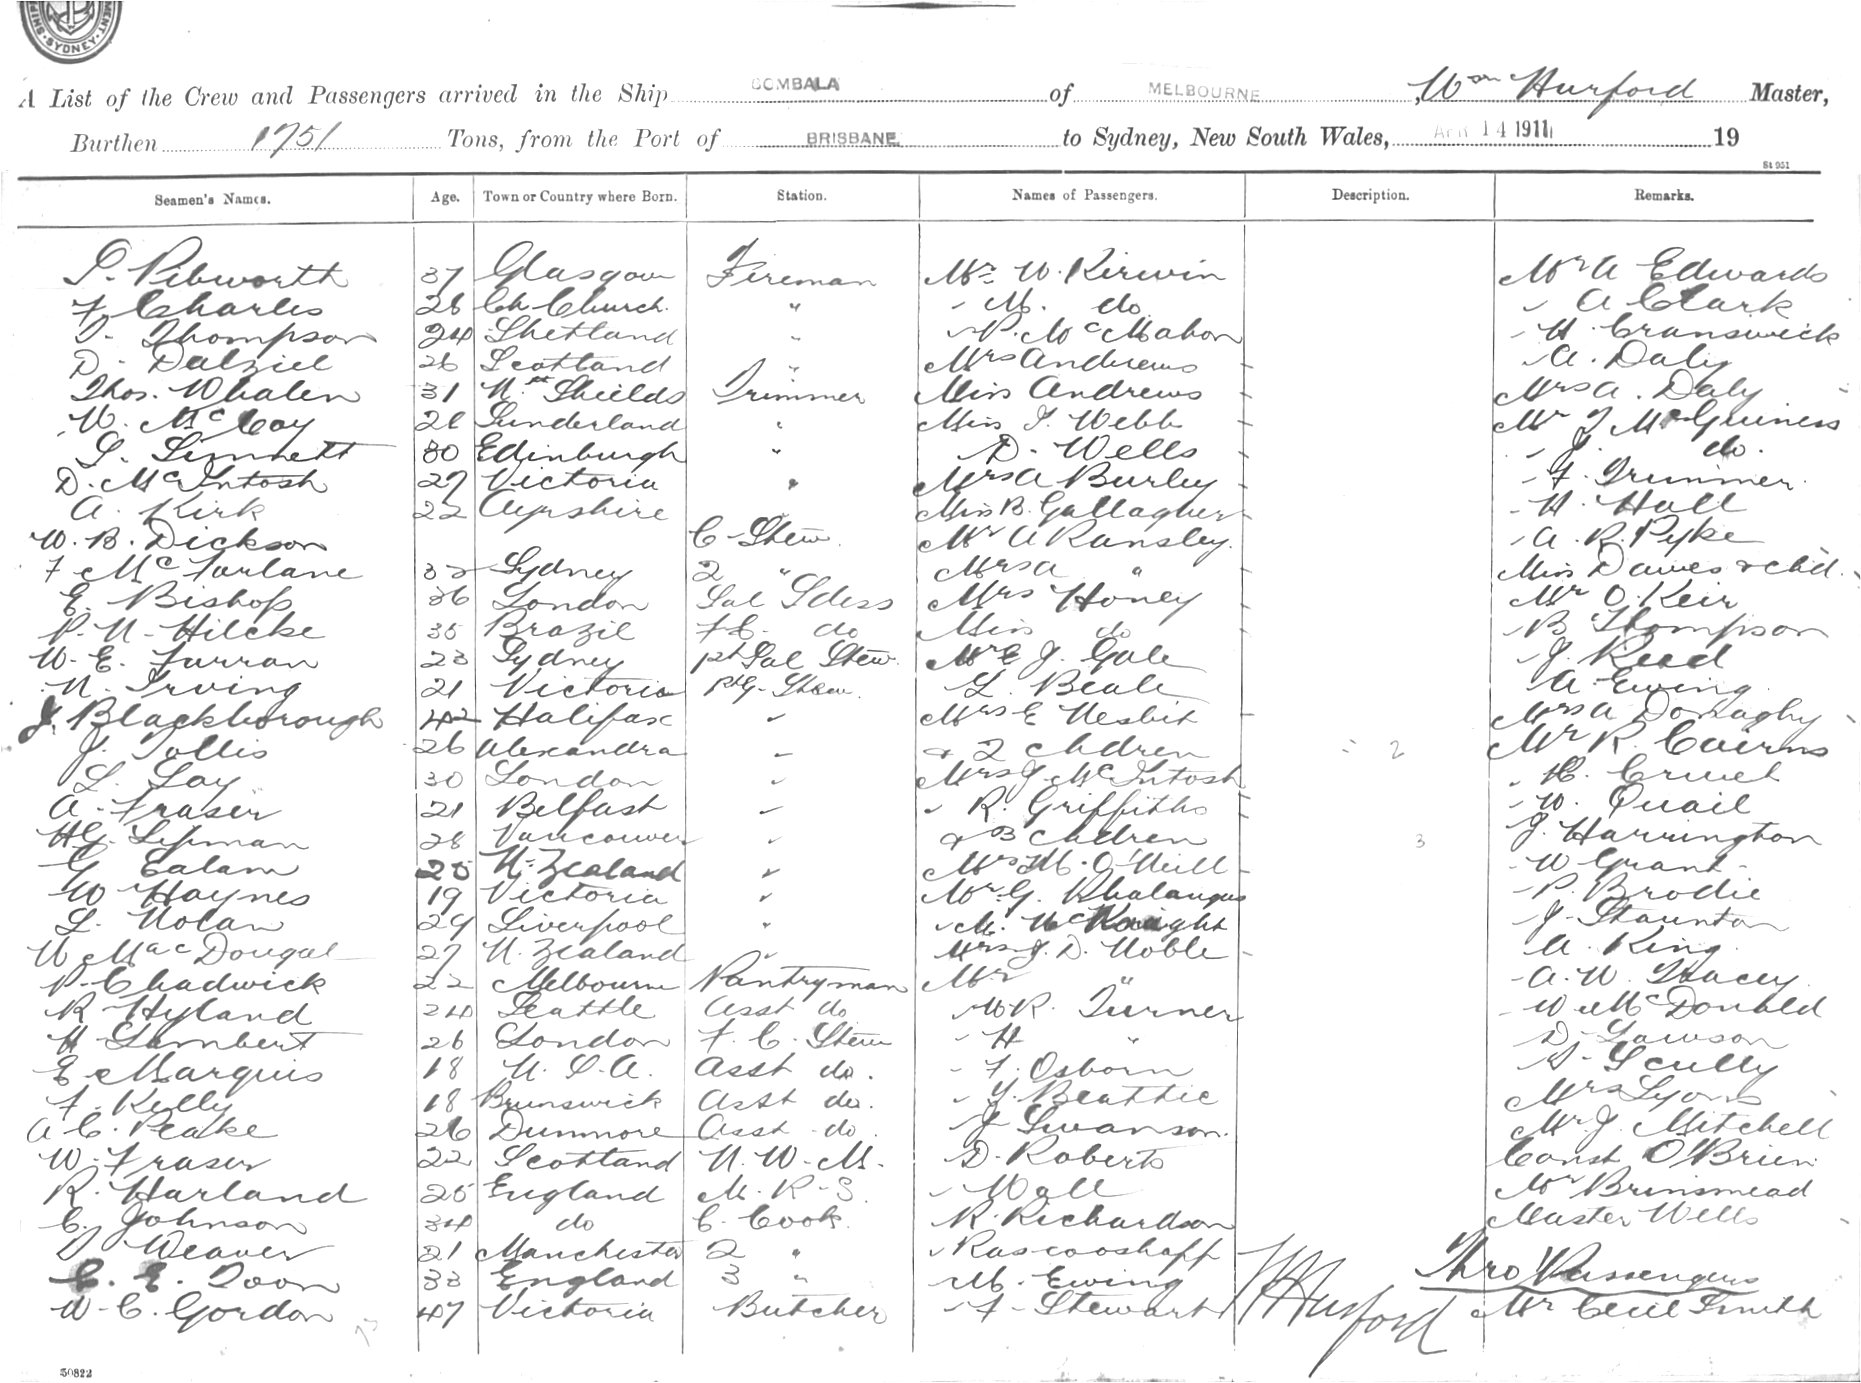 MENT · SHIP
· SYDNEY ·
A List of the Crew and Passengers arrived in the Ship GOMBALA of MELBOURNE, Wm Hurford Master,
Burthen 1751 Tons, from the Port of BRISBANE to Sydney, New South Wales, APR 14 1911 19
St 951
Seamen's Names. Age. Town or Country where Born. Station. Names of Passengers. Description. Remarks.
S. Pibworth 37 Glasgow Fireman Mr W. Kirwin Mr A Edwards
F. Charles 28 Ch. Church. " " M. do " A Clark
Thompson 24 Shetland " " P. McMahon " H. Cranswick
D. Dalziel 26 Scotland " Mrs Andrews " A. Daly
Thos. Whalen 31 Nth Shields Trimmer Miss Andrews Mrs A. Daly
W. McCoy 28 Sunderland " Miss J. Webb Mr J McGuiness
S. Sinnett 30 Edinburgh " D. Wells " J. do.
D. McIntosh 27 Victoria " Mrs A Burley " F. Trimmer
A. Kirk 22 Ayrshire Miss B. Gallagher " H. Hall
W. B. Dickson C Stew. Mr A Ransley. " A. R. Pyke
F McFarlane 32 Sydney 2 " Mrs A " Miss Dawes & chd.
E. Bishop 36 London Sal Sdess Mrs Honey Mr O. Keir
P. N. Hilcke 35 Brazil F C. do Miss do " B Thompson
W. E. Farran 23 Sydney pt Sal Stew. Mr E J. Gale " J. Reed
N. Irving 21 Victoria Stew. " L. Beale " A Ewing
J. Blackborough 42 Halifax " Mrs E Nesbit Mrs A Donaghy
J. Tollis 26 Alexandra " & 2 chdren = 2 Mr R. Cairns
L. Lay 30 London " Mrs J McIntosh " C. Cruet
A. Fraser 21 Belfast " " R. Griffiths " W. Quail
H G. Lipman 28 Vancouver " & 3 chdren 3 J. Harrington
G Ealam 25 N. Zealand " Mrs M. O'Neill " W Grant
W Haynes 19 Victoria " Mr G. Khalangus " P. Brodie
L. Nolan 29 Liverpool " " M. McKnight " J. Staunton
W MacDougal 27 N. Zealand " Mrs J. D. Noble " A. King
P. Chadwick 22 Melbourne Pantryman Mr " " A. W. Stacey
R Hyland 24 Seattle Asst do " W R. Turner " W McDonald
H Lambert 26 London F. C. Stew " H " " D. Lawson
E Marquis 18 U. S. A. Asst do. " F. Osborn " Scully
F. Kelly 18 Brunswick Asst do. " Y. Beattie Mrs Lyons
A C. Peake 26 Dunmore Asst do. " J Swanson. Mr J. Mitchell
W. Fraser 22 Scotland N. W. M. " D. Roberts Const O'Brien
R. Harland 25 England M. R. S. " Wall Mr Brinsmead
C. Johnson 34 do C. Cook. " R. Richardson Master Wells
Weaver 21 Manchester 2 " " Rascooshaff Thro Passengers
C. E. Toon 33 England 3 " " M. Ewing
W. C. Gordon 47 Victoria Butcher " F. Stewart Mr Cecil Smith
W Hurford
50822